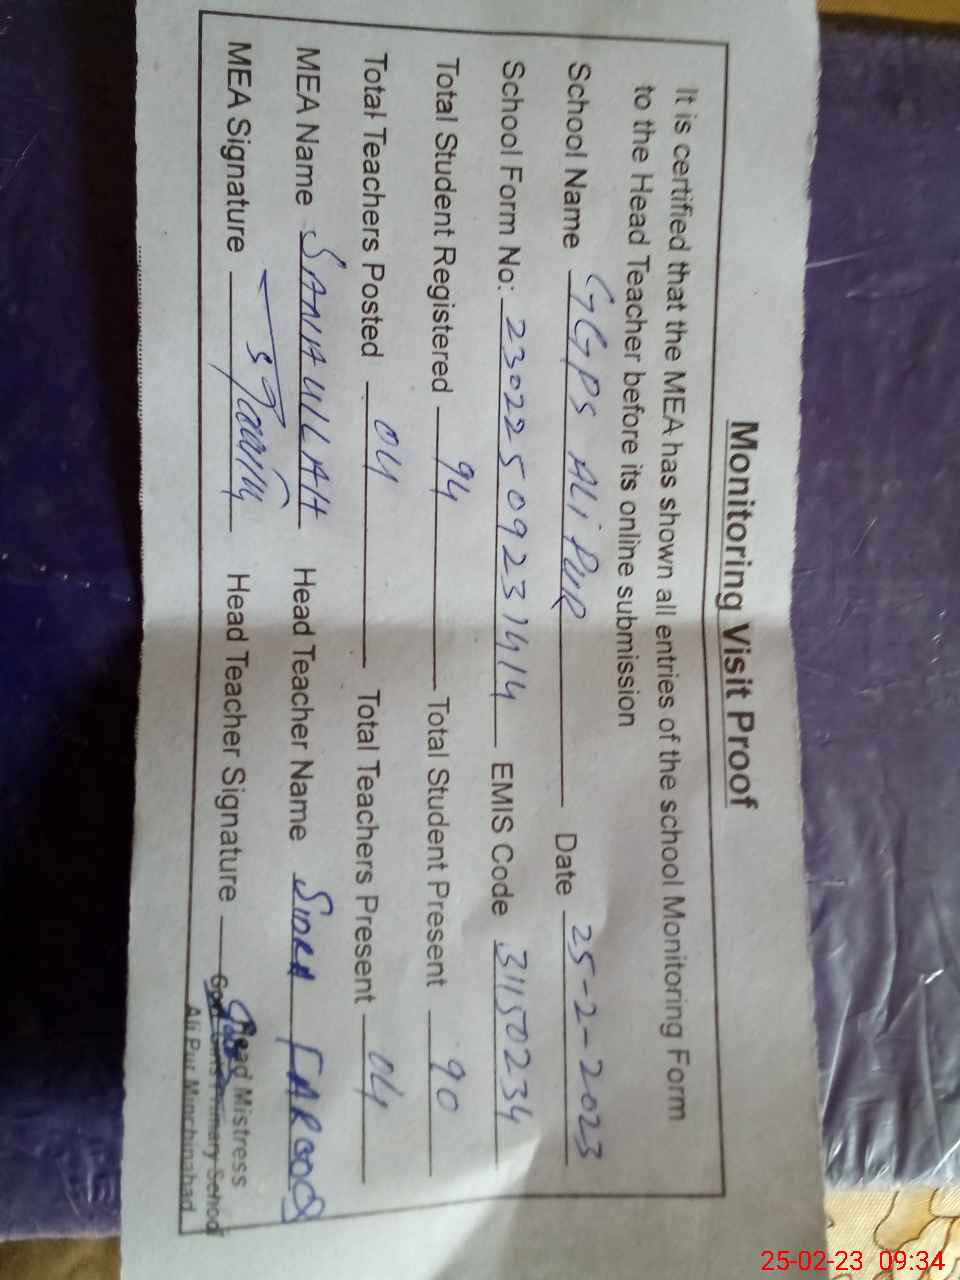 Monitoring Visit Proof
It is certified that the MEA has shown all entries of the school Monitoring Form
to the Head Teacher before its online submission
School Name GGPS ALI PUR Date 25-2-2023
School Form No: 23022509231414 EMIS Code 31150234
Total Student Registered 94 Total Student Present 90
Total Teachers Posted 04 Total Teachers Present 04
MEA Name SANAULLAH Head Teacher Name SIDRA FAROOQ
MEA Signature Head Teacher Signature
Head Mistress
Govt. Girls Primary School
Ali Pur Minchinabad
25-02-23 09:34